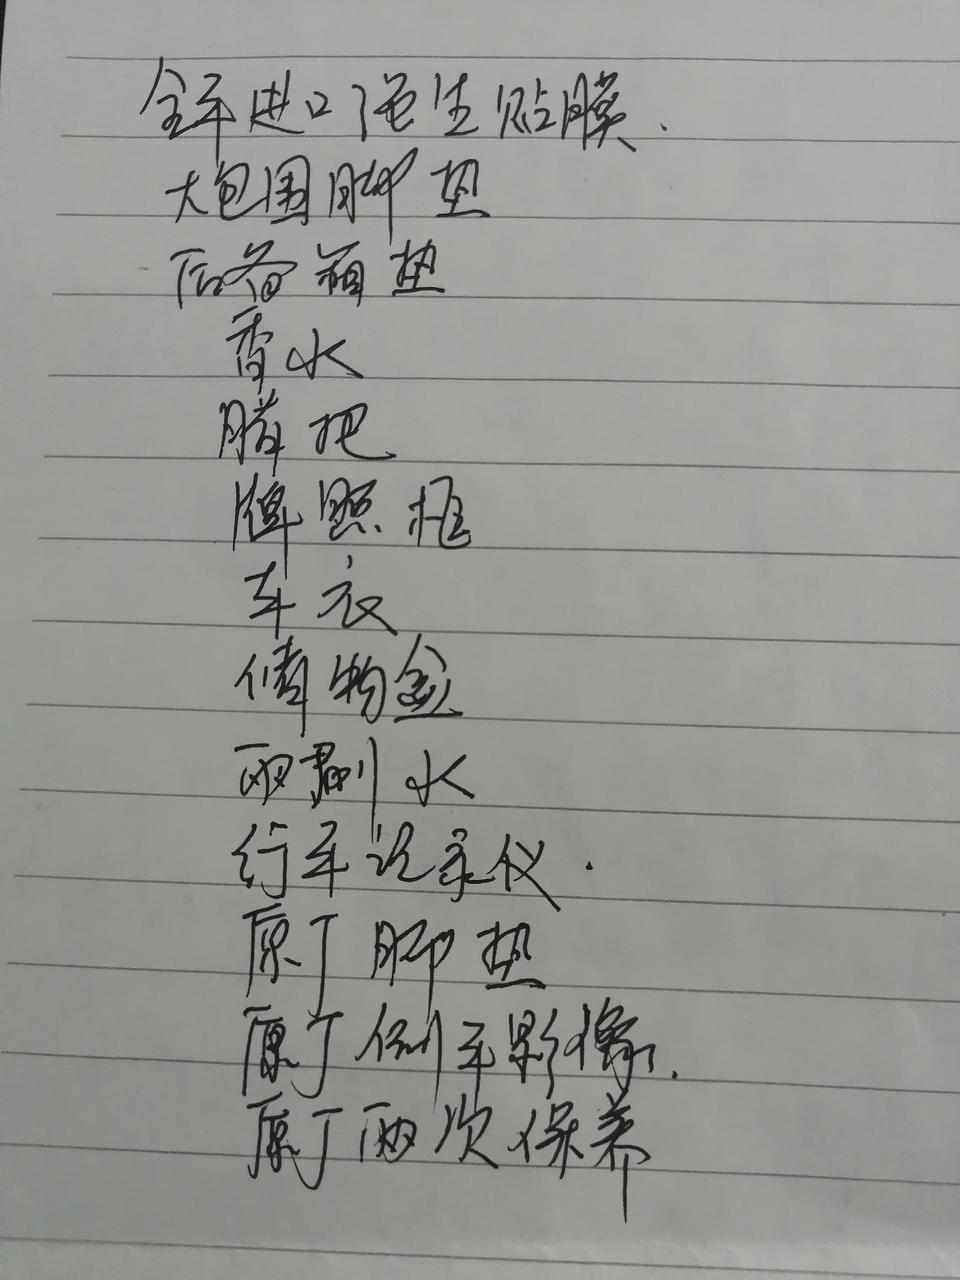 全车进口强生贴膜.
大包围脚垫
后备箱垫
香水
腊把
牌照框
车衣
储物盒
雨刷水
行车记录仪.
原厂脚垫
原厂倒车影像.
原厂两次保养